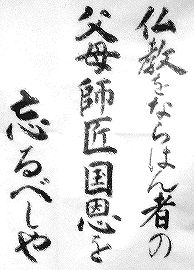 仏教をならはん者の
父母師匠国恩を
忘るべしや